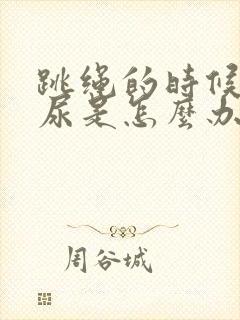 跳绳的时候
尿是怎麽办
周谷城